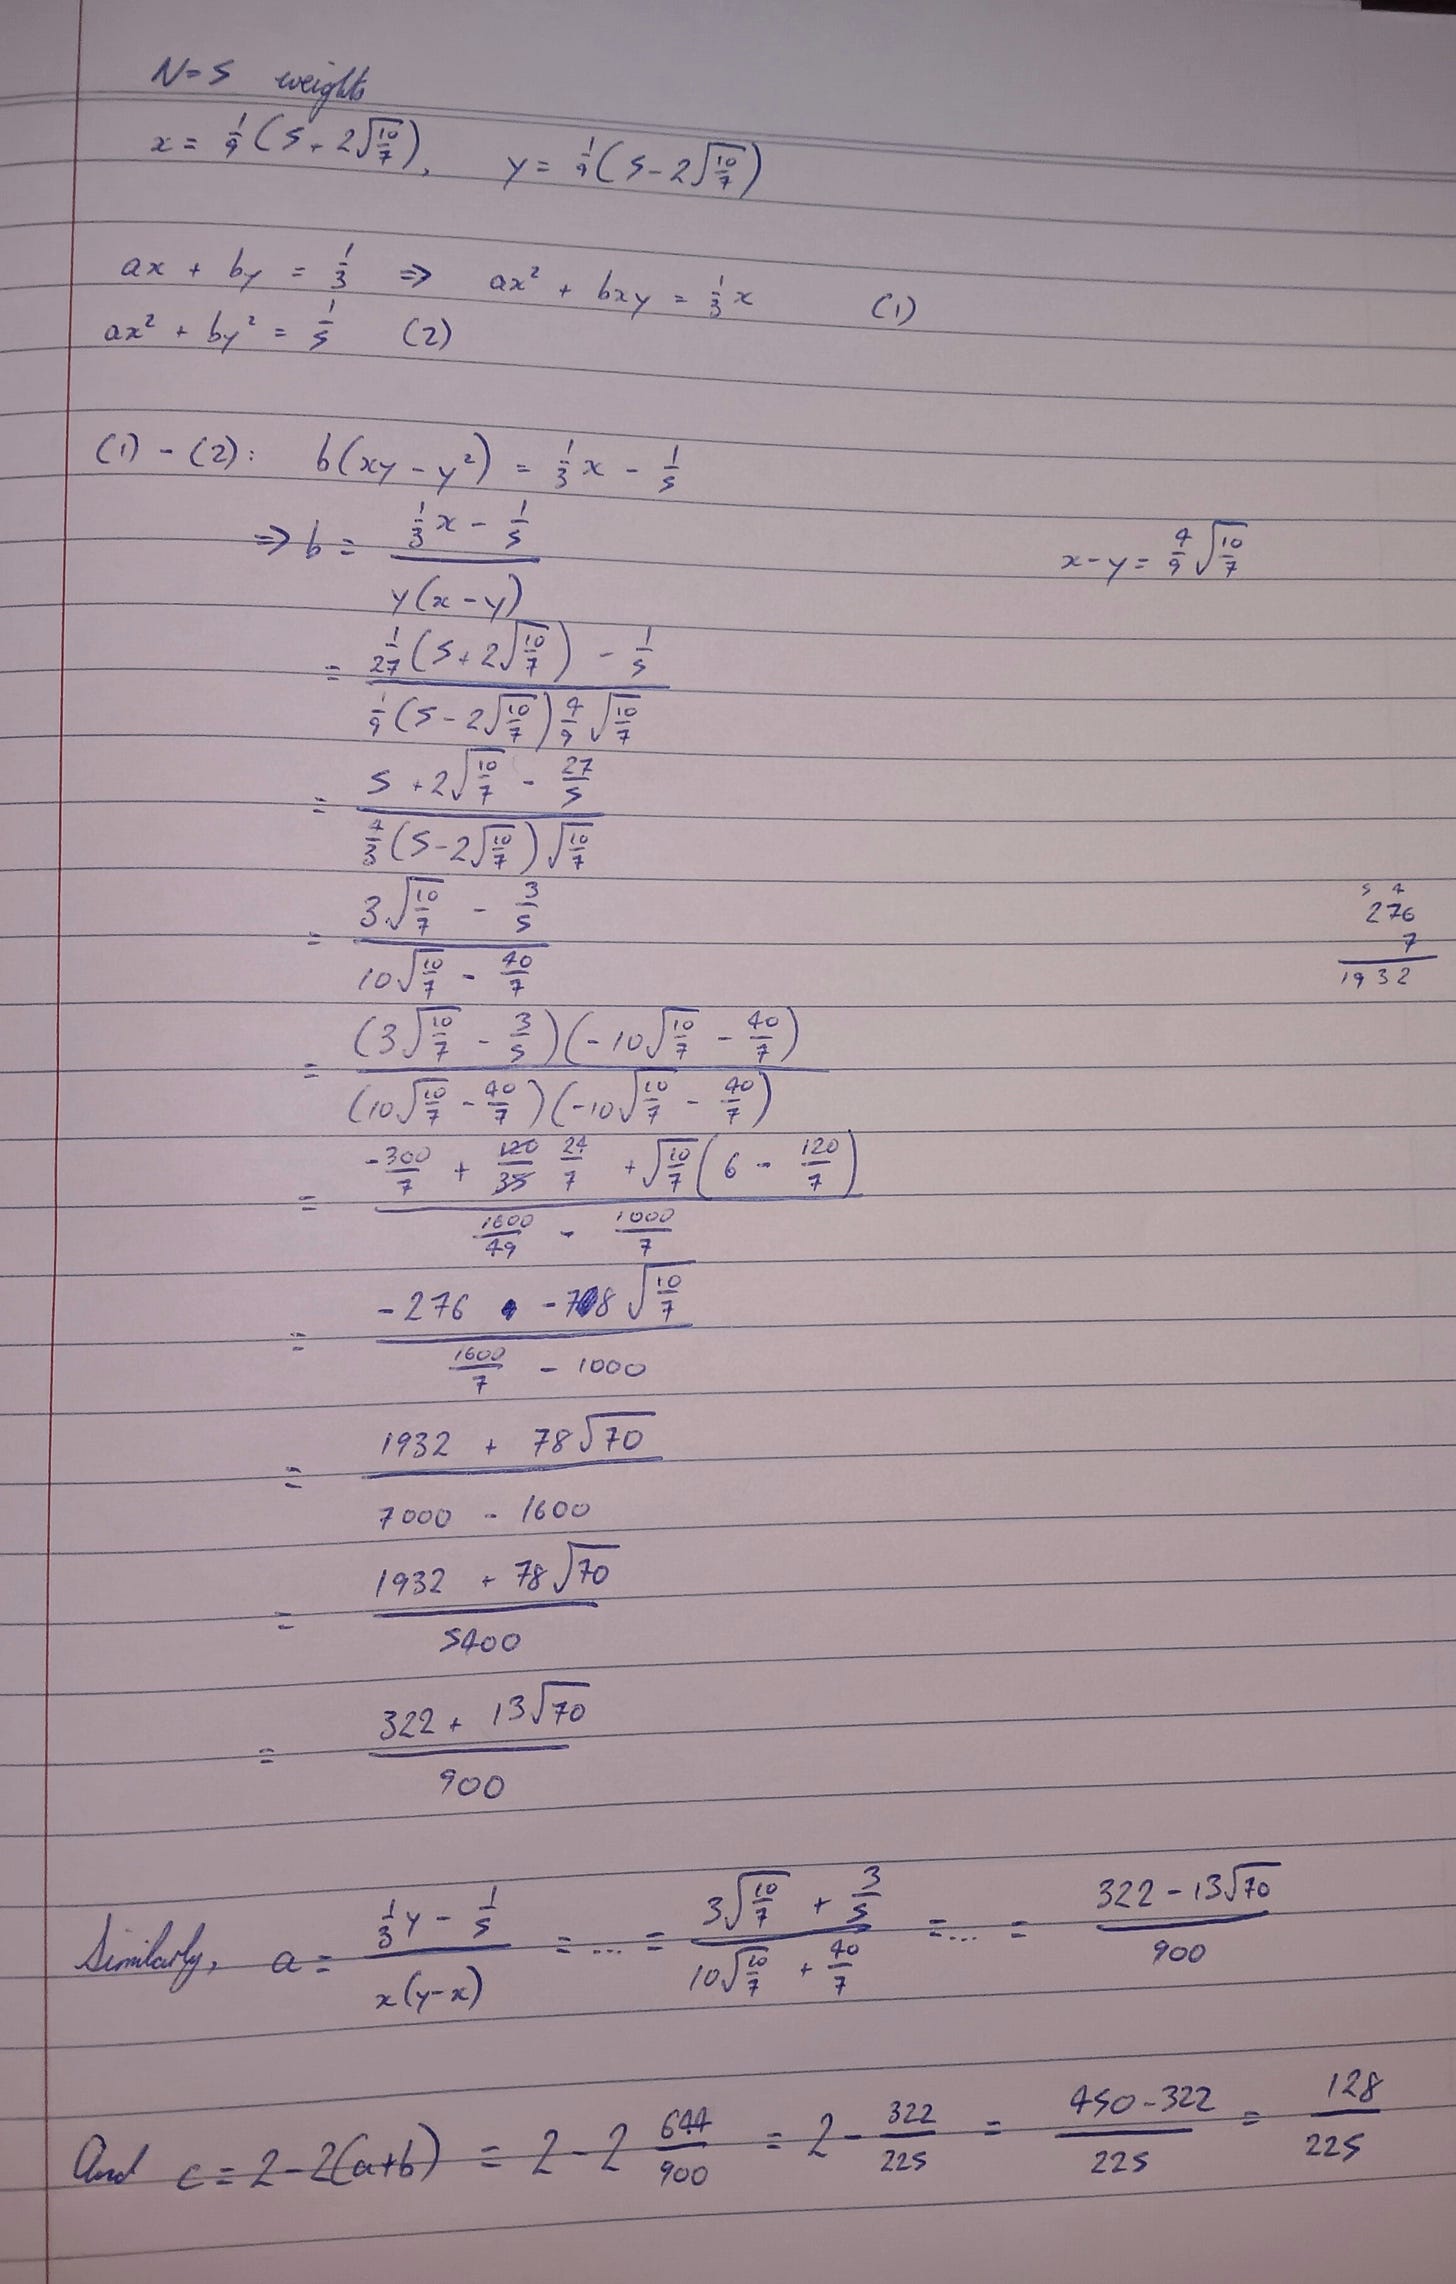 N=5 weights
x = 1/9 (5 + 2√(10/7)), y = 1/9 (5 - 2√(10/7))
ax + by = 1/3 ⇒ ax² + bxy = 1/3 x (1)
ax² + by² = 1/5 (2)
(1) - (2): b(xy - y²) = 1/3 x - 1/5
⇒ b = (1/3 x - 1/5) / (y(x - y))
x - y = 4/9 √(10/7)
= (1/27 (5 + 2√(10/7)) - 1/5) / (1/9 (5 - 2√(10/7)) 4/9 √(10/7))
= (5 + 2√(10/7) - 27/5) / (4/3 (5 - 2√(10/7)) √(10/7))
= (3√(10/7) - 3/5) / (10√(10/7) - 40/7)
5 4
276
7
1932
= ((3√(10/7) - 3/5)(-10√(10/7) - 40/7)) / ((10√(10/7) - 40/7)(-10√(10/7) - 40/7))
= (-300/7 + 120/35 24/7 + √(10/7) (6 - 120/7)) / (1600/49 - 1000/7)
= (-276 - 78√(10/7)) / (1600/7 - 1000)
= (1932 + 78√70) / (7000 - 1600)
= (1932 + 78√70) / 5400
= (322 + 13√70) / 900
Similarly, a = (1/3 y - 1/5) / (x(y-x)) = ... = (3√(10/7) + 3/5) / (10√(10/7) + 40/7) = ... = (322 - 13√70) / 900
And c = 2 - 2(a+b) = 2 - 2 644/900 = 2 - 322/225 = (450 - 322)/225 = 128/225